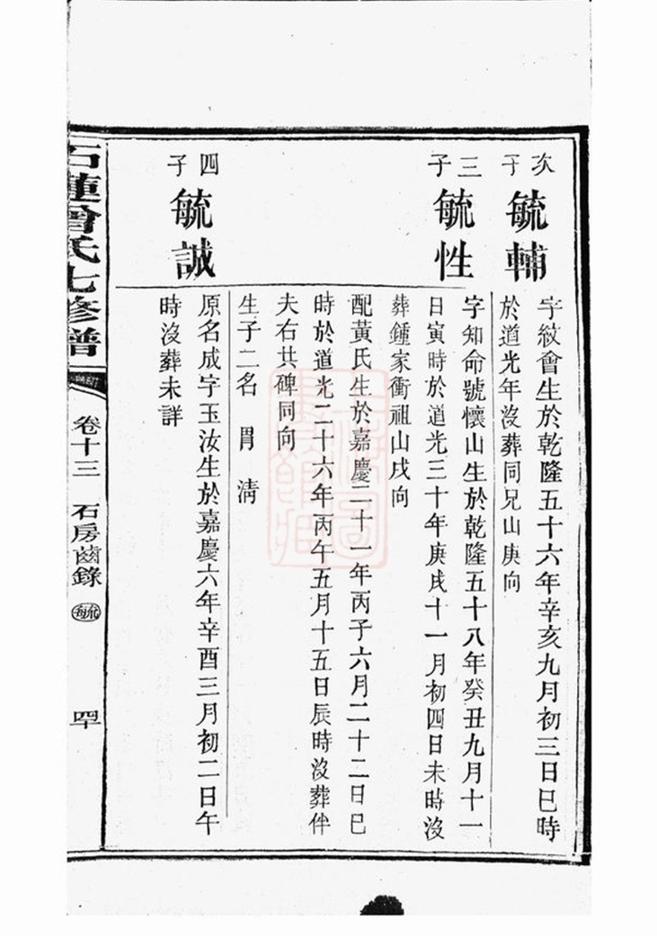 次子
毓輔
字紋會生於乾隆五十六年辛亥九月初三日巳時
於道光年沒葬同兄山庚向
三子
毓性
字知命號懷山生於乾隆五十八年癸丑九月十一
日寅時於道光三十年庚戌十一月初四日未時沒
葬鍾家衝祖山戌向
配黃氏生於嘉慶二十一年丙子六月二十二日巳
時於道光二十六年丙午五月十五日辰時沒葬伴
夫右共碑同向
生子二名 胃 淸
四子
毓誠
原名成字玉汝生於嘉慶六年辛酉三月初二日午
時沒葬未詳
石蓮曾氏七修譜
卷十三 石房齒錄 毓
四十